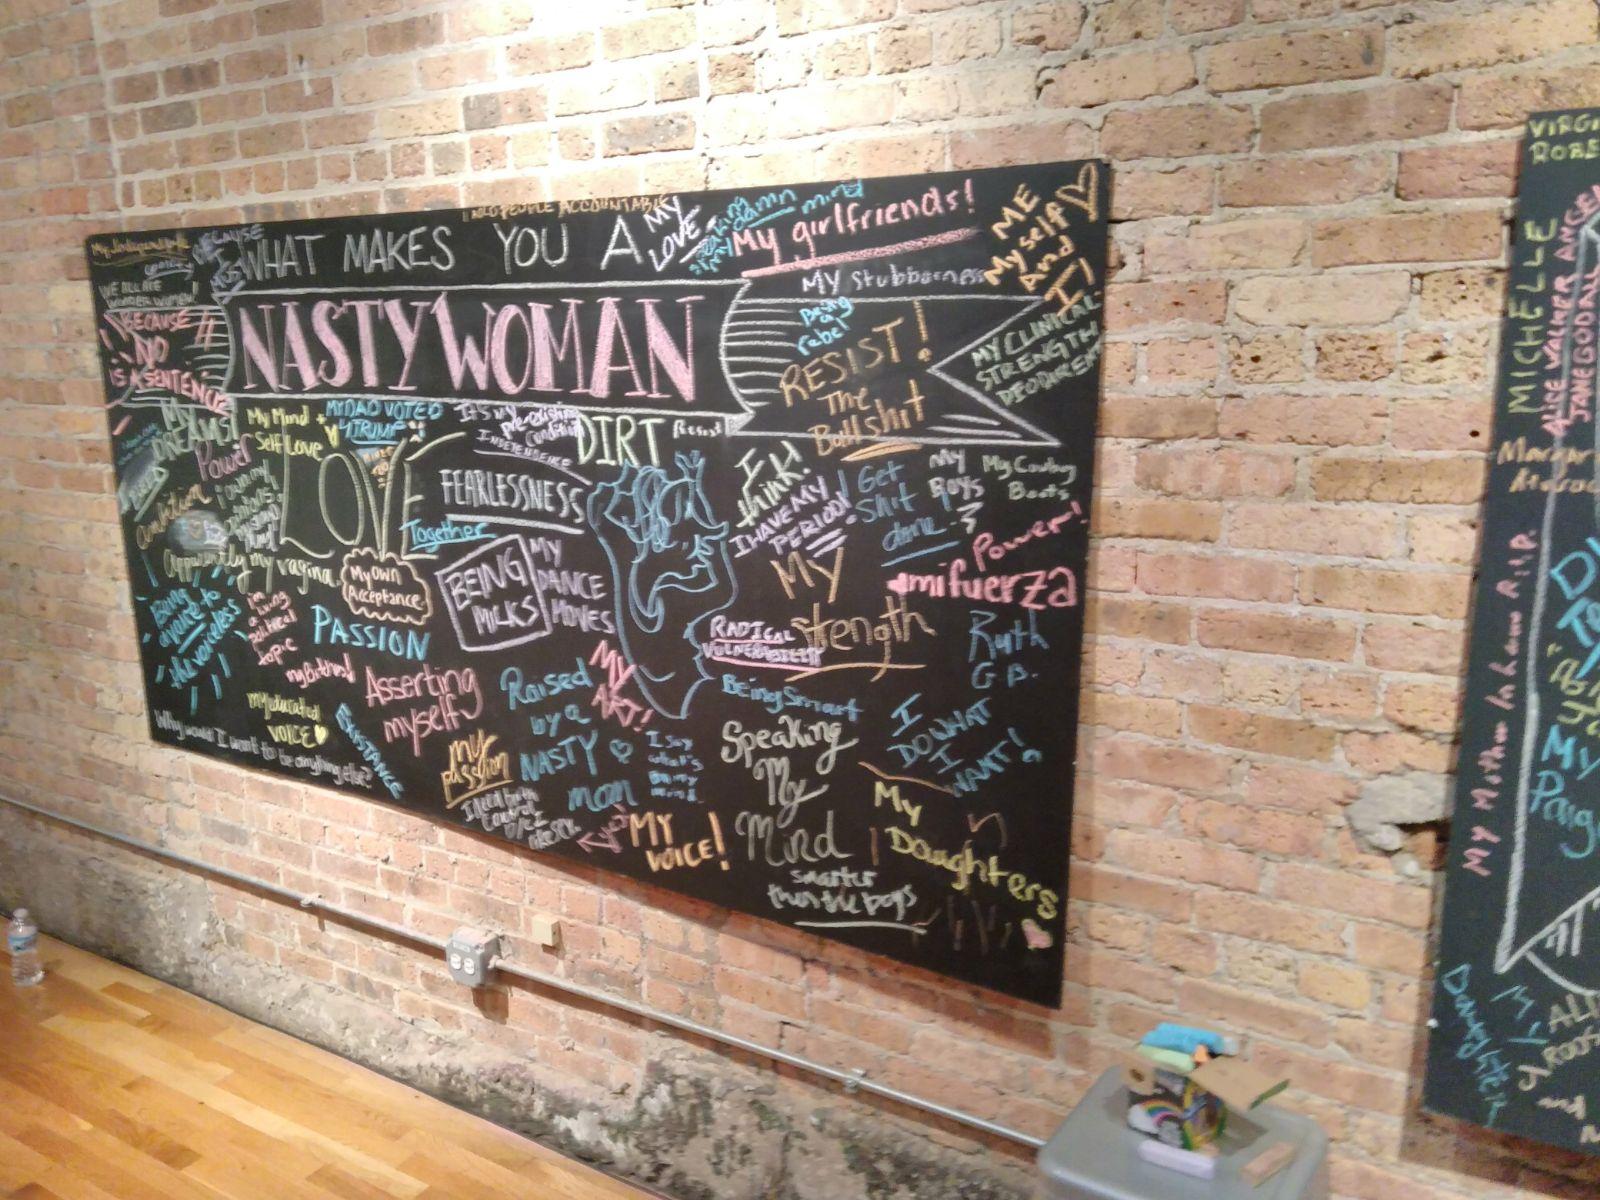 PEOPLE ACCOUNTABLE
WHAT MAKES YOU A
NASTY WOMAN
MY
LOVE
speaking
my damn mind
My girlfriends!
ME
Myself
And
I
My Stubbornness
MY CLINICAL
STRENGTH
DEODORENT
Being
a
rebel
RESIST!
The
Bullshit
BECAUSE
I
WE ALL ARE
WONDER WOMEN!
BECAUSE
NO
IS A SENTENCE
MY
DREAMS!
My Mind +
Self Love
MY DAD VOTED
4 TRUMP
It's my
pre-existing
Condition
INDEPENDENCE
DIRT
Resist
Power
LOVE
FEARLESSNESS
Together
I
think!
I HAVE MY
PERIOD!
I Get
Shit
done!
My
Boys
3
My Cowboy
Boots
Power!
ambition
Apparently my vagina.
My own
Acceptance.
BEING
MILKS
MY
DANCE
MOVES
MY
strength
mifuerza
RADICAL
VULNERABILITY
Ruth
G.B.
Being
a voice to
the voiceless
i'm
a living
political
topic
PASSION
my Birthrod
Asserting
myself
Raised
by a
NASTY
mom
MY
ART!
Being Smart
I
DO WHAT
I
WANT!
my educated
VOICE
RESISTANCE
my
passion
I say
what's
on my
mind.
Speaking
My
Mind
Why would I want to be anything else?
I need birth
control
MY
VOICE!
smarter
than the boys
My
Daughters
VIRGI
ROBE
MICHELLE
ALICE WALKER
ANGEL
JANE GOODALL
Margar
My Mother In Law R.I.P.
My
Daughter
My
ALI
ROOS
and